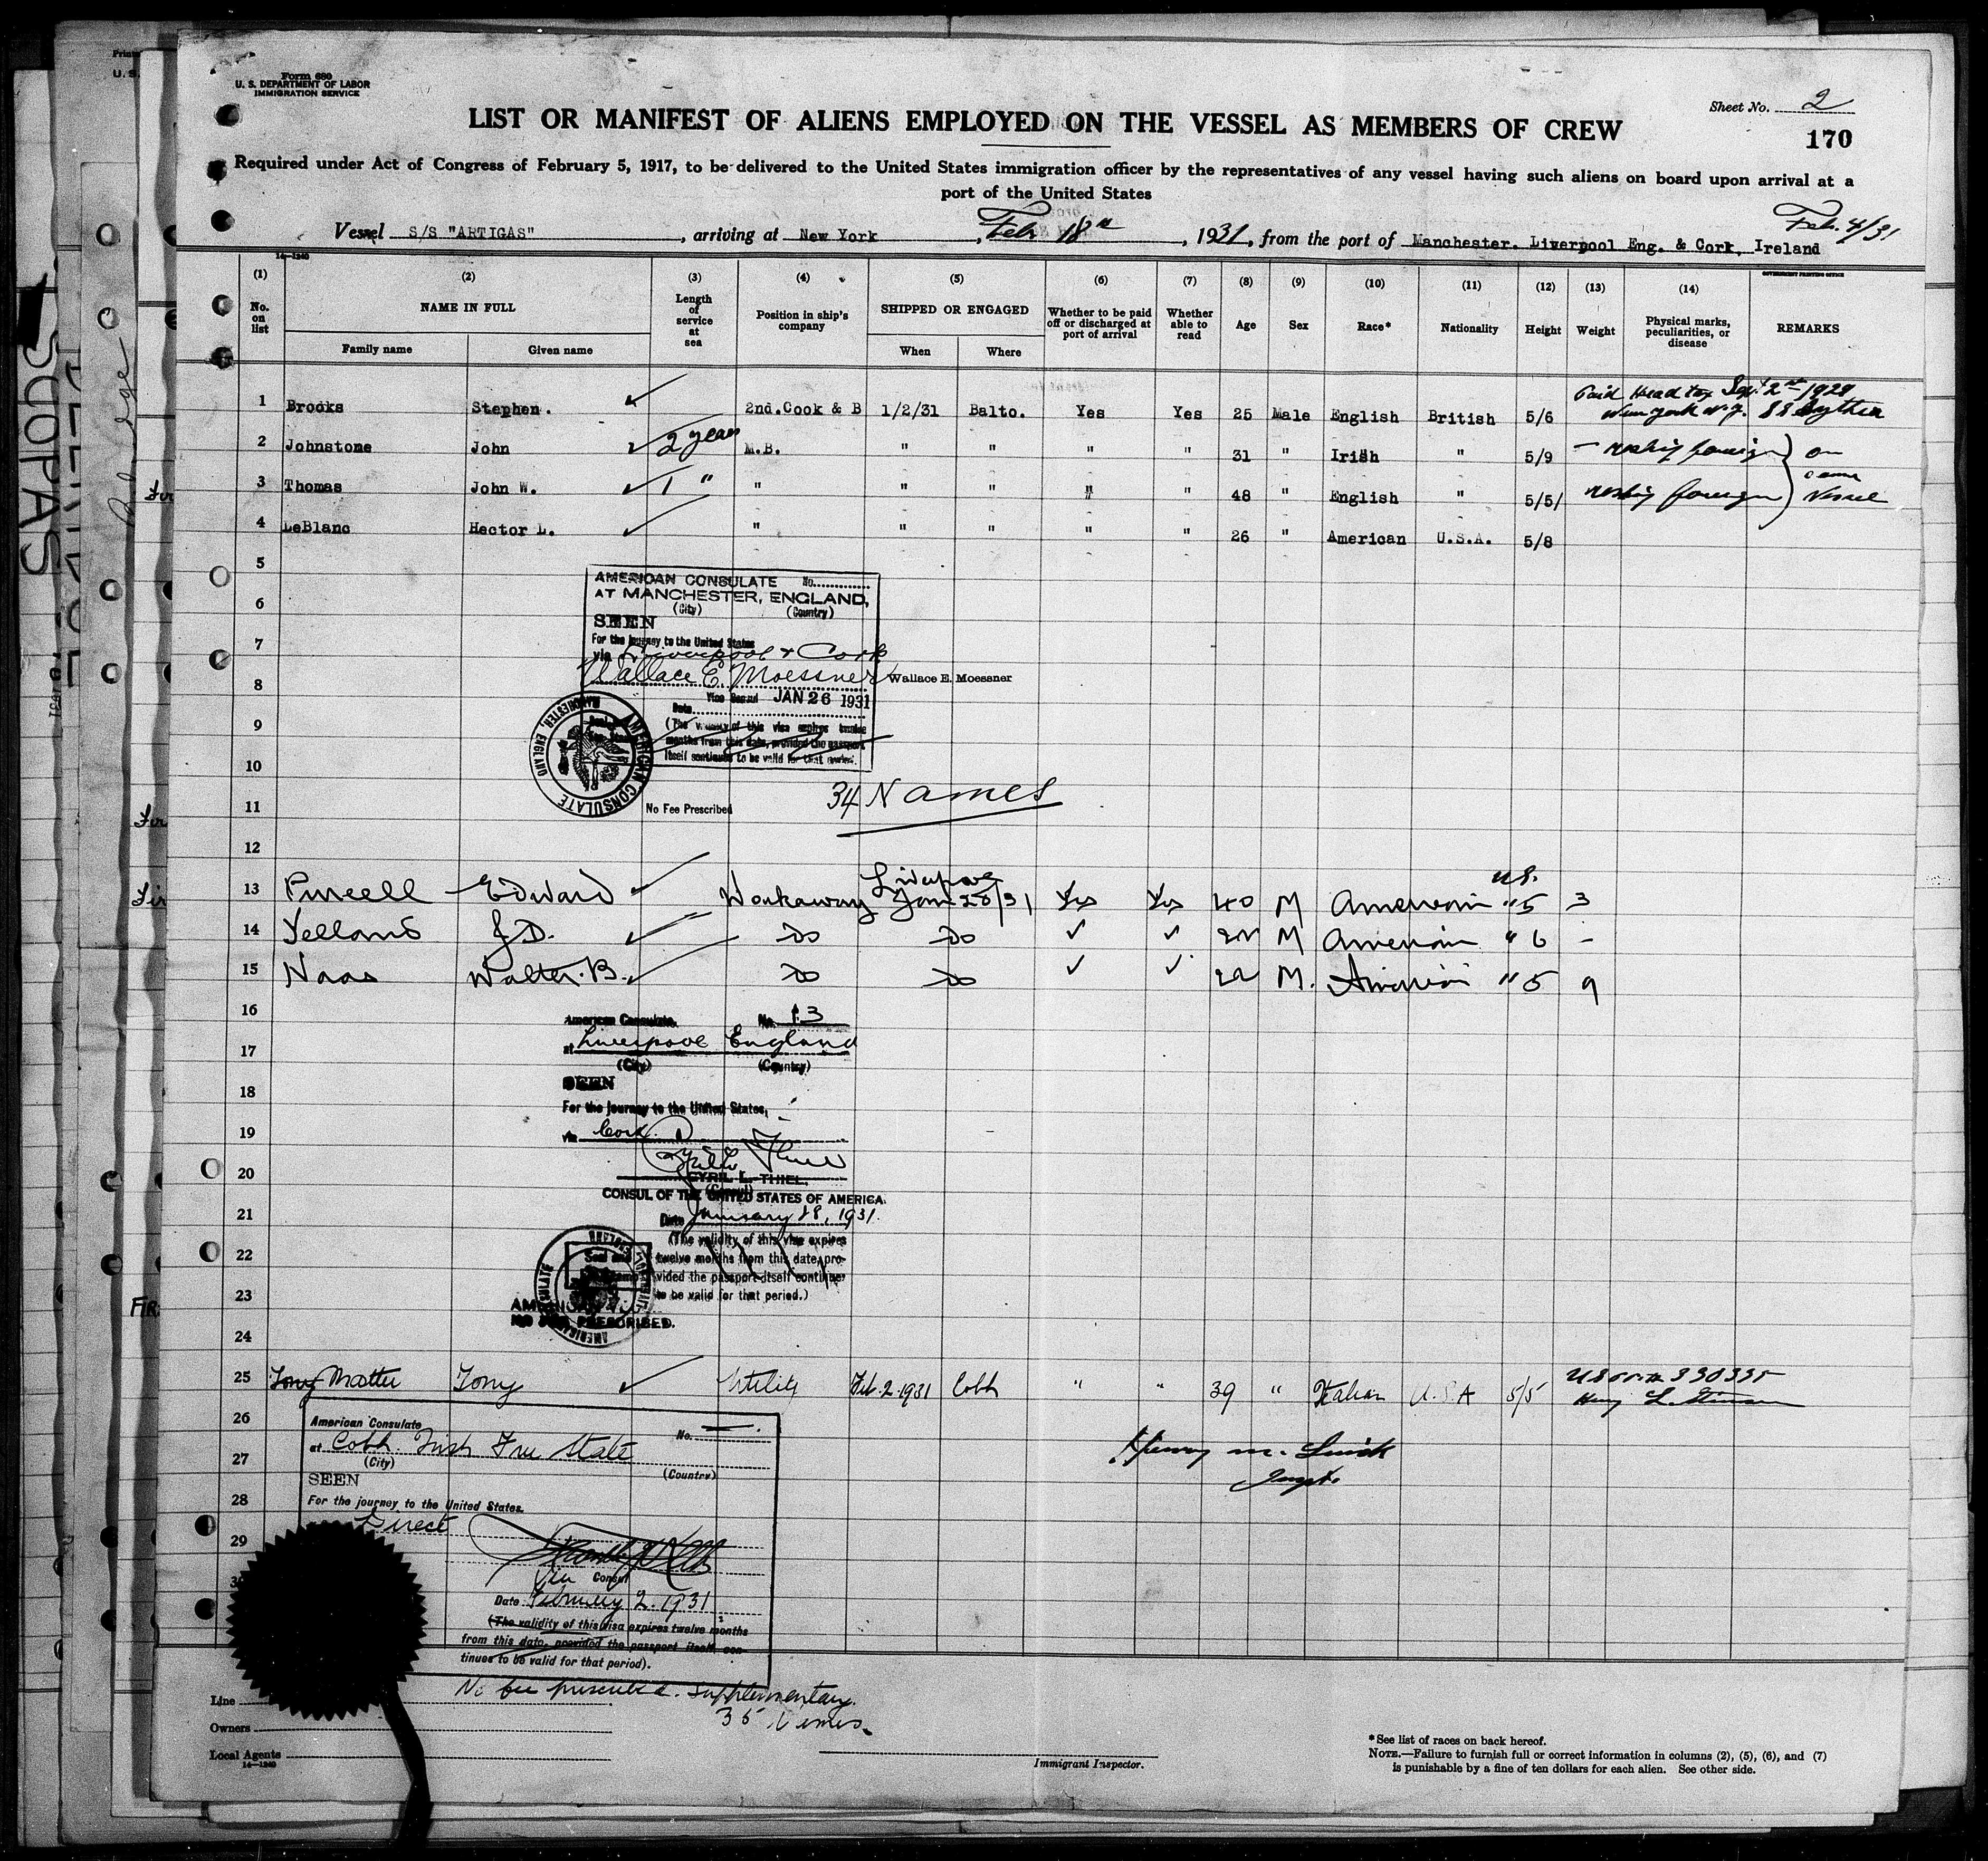 Form 680
U. S. DEPARTMENT OF LABOR
IMMIGRATION SERVICE
Sheet No. 2
LIST OR MANIFEST OF ALIENS EMPLOYED ON THE VESSEL AS MEMBERS OF CREW
170
Required under Act of Congress of February 5, 1917, to be delivered to the United States immigration officer by the representatives of any vessel having such aliens on board upon arrival at a
port of the United States
Feb. 4/31
Vessel S/S "ARTIGAS", arriving at New York, Feb 18th, 1931, from the port of Manchester. Liverpool Eng. & Cork, Ireland
14—1240
GOVERNMENT PRINTING OFFICE
(1) (2) (3) (4) (5) (6) (7) (8) (9) (10) (11) (12) (13) (14)
No. on list
NAME IN FULL
Family name Given name
Length of service at sea
Position in ship's company
SHIPPED OR ENGAGED
When Where
Whether to be paid off or discharged at port of arrival
Whether able to read
Age Sex Race* Nationality Height Weight
Physical marks, peculiarities, or disease
REMARKS
Paid Head tax Sept 2nd 1929
1 Brooks Stephen. 2nd.Cook & B 1/2/31 Balto. Yes Yes 25 Male English British 5/6 New York N.Y. SS Scythia
2 Johnstone John 2 years M.B. " " " " 31 " Irish " 5/9 reship foreign on
3 Thomas John W. 1 " " " " " " 48 " English " 5/5 reship foreign same Vessel
4 LeBlanc Hector L. " " " " " 26 " American U.S.A. 5/8
5
6
7
8
9
10
11
12
AMERICAN CONSULATE No.
AT MANCHESTER, ENGLAND,
(City) (Country)
SEEN
For the journey to the United States
via Liverpool & Cork
Wallace E. Moessner Wallace E. Moessner
Vice Consul JAN 26 1931
Date
(The validity of this visa expires twelve
months from this date, provided the passport
itself continues to be valid for that period.
AMERICAN CONSULATE
MANCHESTER, ENGLAND
No Fee Prescribed
34 Names
13 Purcell Edward Workaway Liverpool Jan 28/31 Yes Yes 40 M American U.S. " 5 3
14 Yelland J.D. Do Do ✓ ✓ 22 M American " 6 -
15 Naas Walter. B. Do Do ✓ ✓ 22 M. American " 5 9
16
17
18
19
20
21
22
23
24
American Consulate, No. 13
at Liverpool England
(City) (Country)
SEEN
For the journey to the United States,
via Cork
CYRIL L. THIEL
(Consul)
CONSUL OF THE UNITED STATES OF AMERICA.
Date January 28, 1931.
(The validity of this visa expires
twelve months from this date, pro-
vided the passport itself continues
to be valid for that period.)
NO FEE PRESCRIBED.
25 Tony Matter Tony Utility Feb. 2. 1931 Cobh " " 39 " Italian U.S.A 5/5 330335
Henry L. Stimson
26
27
28
29
American Consulate No.
at Cobh Irish Free State
(City) (Country)
SEEN
For the journey to the United States.
Direct
Vice Consul
Date February 2. 1931
(The validity of this visa expires twelve months
from this date, provided the passport itself con-
tinues to be valid for that period).
Henry M.
Inspt.
No fee prescribed. Supplementary.
35 Names.
Line
Owners
Local Agents
14—1240
Immigrant Inspector.
*See list of races on back hereof.
NOTE.—Failure to furnish full or correct information in columns (2), (5), (6), and (7)
is punishable by a fine of ten dollars for each alien. See other side.